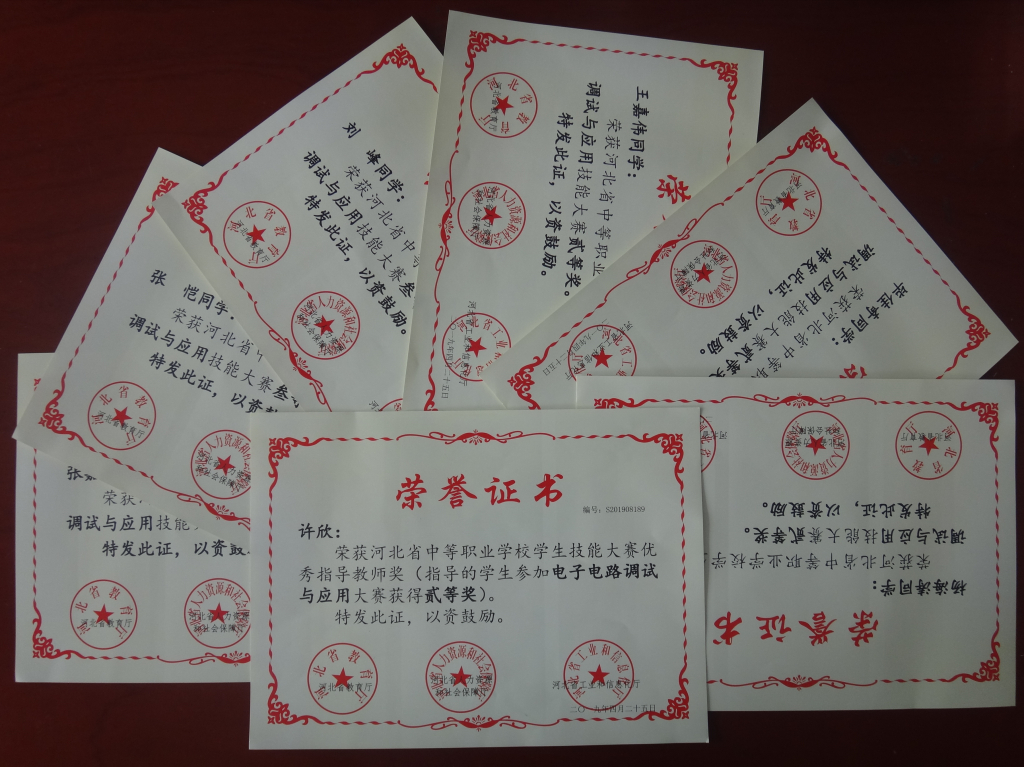 荣誉证书
编号：S201908189
许欣：
荣获河北省中等职业学校学生技能大赛优
秀指导教师奖（指导的学生参加电子电路调试
与应用大赛获得贰等奖）。
特发此证，以资鼓励。
河北省教育厅
河北省工业和信息化厅
二〇一九年四月二十五日
荣获
调试与应用技能
特发此证，以资鼓
河北省教育厅
张 恺同学：
荣获河北省中
调试与应用技能大赛叁
特发此证，以资鼓
河北省教育厅
刘 峰同学：
荣获河北省中
调试与应用技能大赛叁
特发此证，以资鼓励。
河北省教育厅
王嘉伟同学：
荣获河北省中等职业
调试与应用技能大赛贰等奖。
特发此证，以资鼓励。
河北省教育厅
河北省工业和信息化厅
二〇一九年四月二十五日
荣获河北省中等
调试与应用技能大赛贰等
特发此证，以资鼓励。
河北省教育厅
荣誉证书
杨海涛同学：
荣获河北省中等职业学校学
调试与应用技能大赛贰等奖。
特发此证，以资鼓励。
河北省教育厅